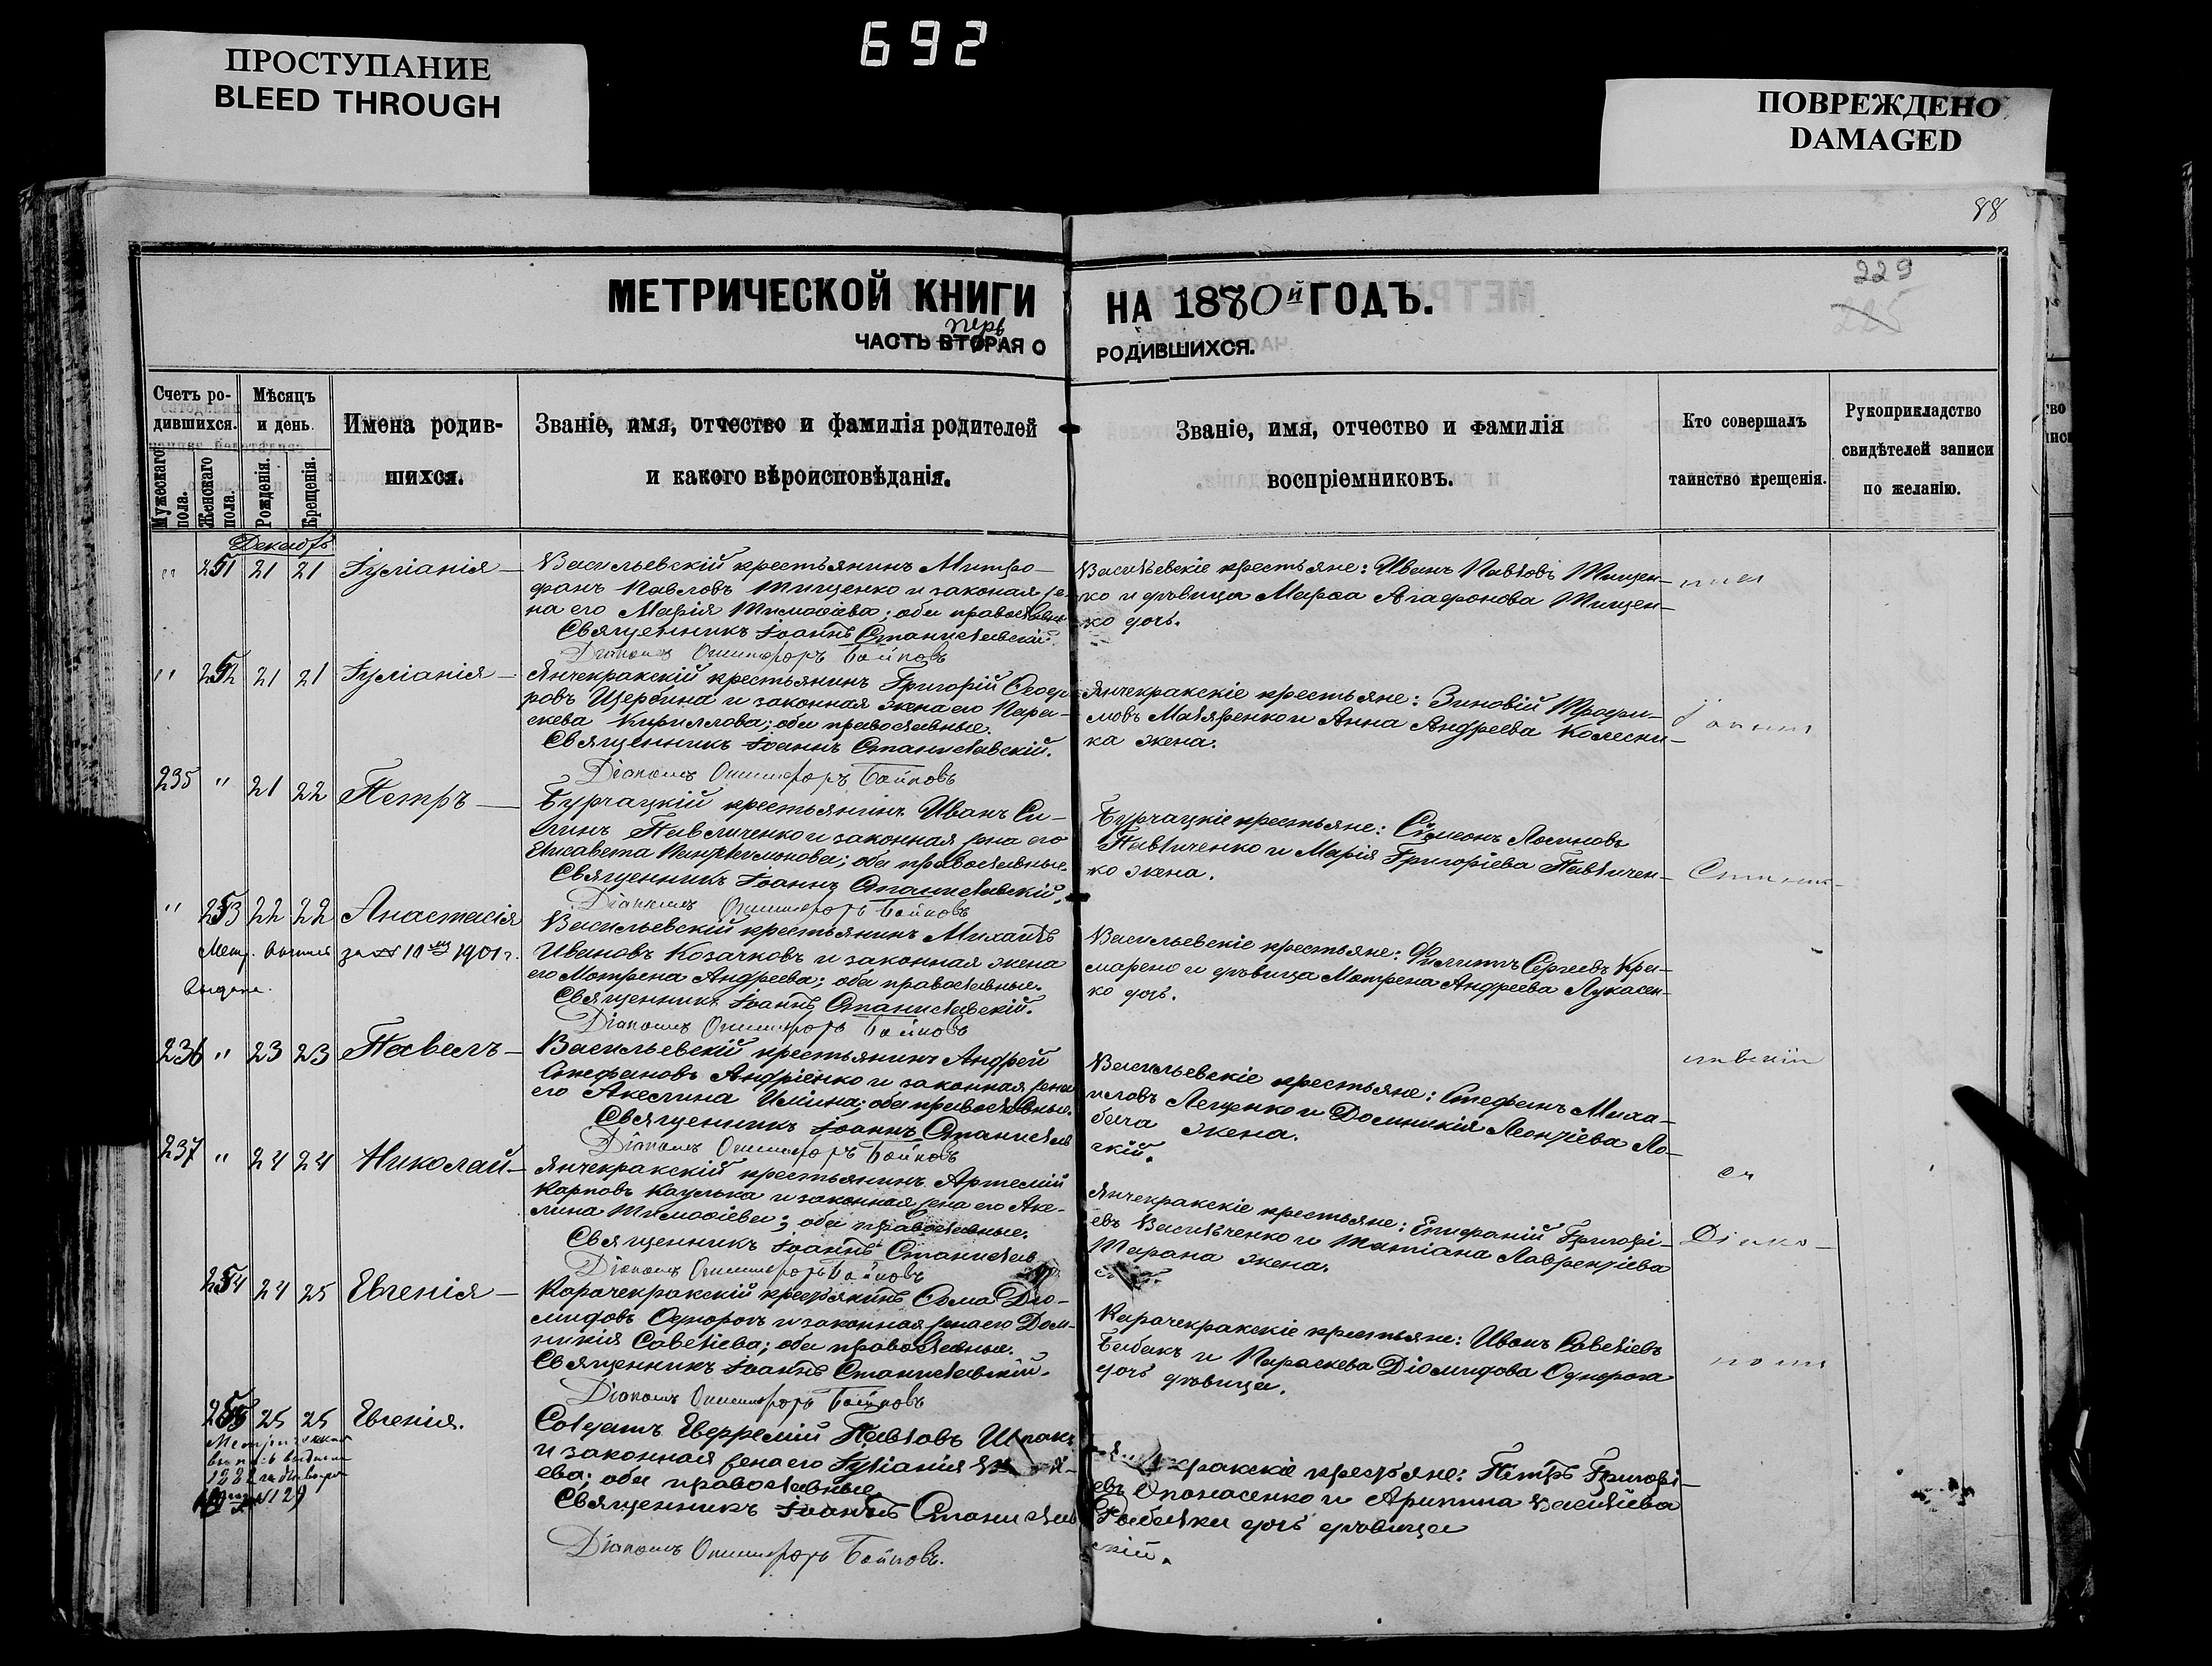 692
ПРОСТУПАНИЕ
BLEED THROUGH
ПОВРЕЖДЕНО
DAMAGED
88
229
225
МЕТРИЧЕСКОЙ КНИГИ НА 1880й ГОДЪ.
перв
ЧАСТЬ ВТОРАЯ О РОДИВШИХСЯ.
Счетъ ро-
дившихся.
Мужескаго пола.
Женскаго пола.
Мѣсяцъ
и день.
Рожденія.
Крещенія.
Имена родив-
шихся.
Званіе, имя, отчество и фамилія родителей
и какого вѣроисповѣданія.
Званіе, имя, отчество и фамилія
воспріемниковъ.
Кто совершалъ
таинство крещенія.
Рукоприкладство
свидѣтелей записи
по желанію.
Декабрь
" 251 21 21 Іуліанія
Васильевскій крестьянинъ Митро-
фанъ Павловъ Тищенко и законая же-
на его Марія Тимоѳіева; оба православные
Священникъ Іоаннъ Станиславскій.
Діаконъ Онисифоръ Бойковъ
Васильевскіе крестьяне: Иванъ Павловъ Тищен-
ко и дѣвица Марѳа Агафонова Тищен-
ко дочь.
" 252 21 21 Іуліанія
Янчекракскій крестьянинъ Григорій Ѳеодо-
ровъ Щербина и законная жена его Пара-
скева Кириллова; оба православные.
Священникъ Іоаннъ Станиславскій.
Діаконъ Онисифоръ Бойковъ
Янчекракскіе крестьяне: Зиновій Трофи-
мовъ Маляренко и Анна Андреева Колесни-
ка жена.
235 " 21 22 Петръ
Бурчацкій крестьянинъ Иванъ Си-
Павличенко и законная жена его
Елисавета Пантелимонова; оба православные.
Священникъ Іоаннъ Станиславскій.
Діаконъ Онисифоръ Бойковъ
Бурчацкіе крестьяне: Симеонъ Логиновъ
Павличенко и Марія Григоріева Павличен-
ко жена.
" 253 22 22 Анастасія
Метр. выпись за № 11 1901 г.
выдана.
Васильевскій крестьянинъ Михаилъ
Ивановъ Козачковъ и законная жена
его Мотрена Андреева; оба православные.
Священникъ Іоаннъ Станиславскій.
Діаконъ Онисифоръ Бойковъ
Васильевскіе крестьяне: Филиппъ Сергеевъ Кра-
маренко и дѣвица Мотрена Андреева Лукасен-
ко дочь.
236 " 23 23 Павелъ
Васильевскій крестьянинъ Андрей
Стефановъ Андріенко и законная жена
его Акелина Илина; оба православные.
Священникъ Іоаннъ Станислав
Діаконъ Онисифоръ Бойковъ
Васильевскіе крестьяне: Стефанъ Миха-
иловъ Лещенко и Домникія Леонтіева Ло-
бача жена.
скій.
237 " 24 24 Николай
Янчекракскій крестьянинъ Артемій
Карповъ Кацулька и законная жена его Аке-
лина Тимоѳіева; оба православные.
Священникъ Іоаннъ Станислав
Діаконъ Онисифоръ Бойковъ
Янчекракскіе крестьяне: Епифаній Григорі-
евъ Васильченко и Татіана Лаврентіева
Тарана жена.
254 24 25 Евгенія
Карачекракскій крестьянинъ Ѳома Діо-
мидовъ Однорогъ и законная жена его Дом-
никія Савеліева; оба православные.
Священникъ Іоаннъ Станиславскій.
Діаконъ Онисифоръ Бойковъ
Карачекракскіе крестьяне: Иванъ Савеліевъ
Бабакъ и Параскева Діомидова Однорога
дочь дѣвица.
255 25 25 Евгенія.
Солдатъ Евфремій Павловъ Шпакъ
и законная жена его Іуліанія
ева; оба православные
Священникъ Іоаннъ Станислав
Діаконъ Онисифоръ Бойковъ.
кракскіе крестьяне: Петръ Григорі-
евъ Опонасенко и Арипина Василіева
Рыбалки дочь дѣвица
скій.